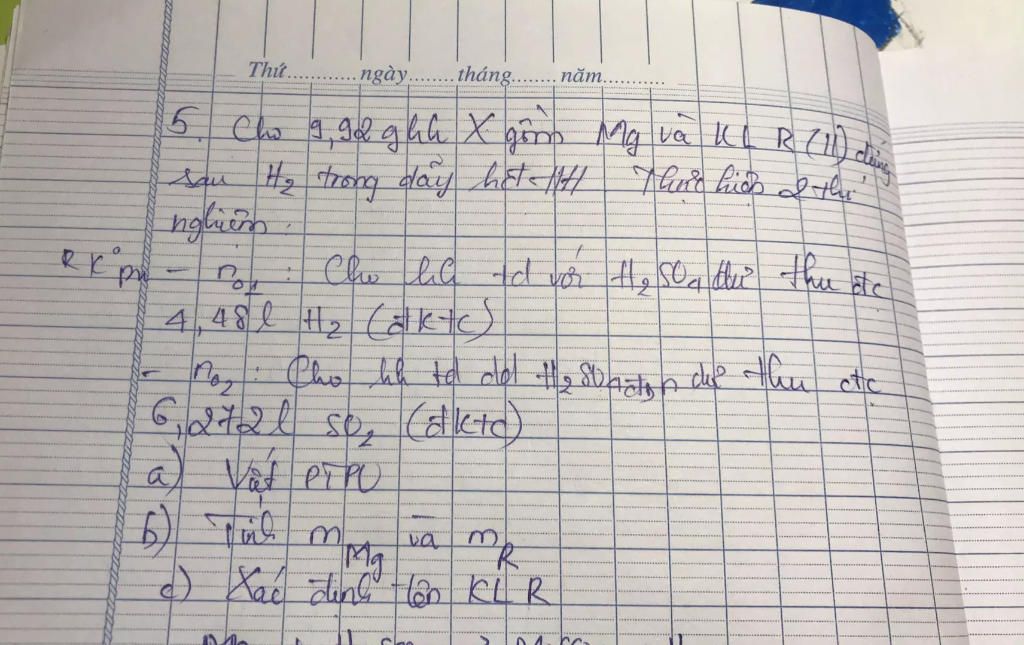 Thứ............ngày........tháng.......năm...........
5. Cho 9,92g hh X gồm Mg và KL R (II) đứng
sau H2 trong dãy hđ-HH Thực hiện 2 thí
nghiệm.
R K° pu - no1 : Cho hh td với H2SO4 dư thu đc
4,48l H2 (đktc)
- no2 : Cho hh td dd H2SO4 đđn dư thu đc
6,272l SO2 (đktc)
a) Viết PTPU
b) Tính mMg và mR
c) Xác định tên KL R